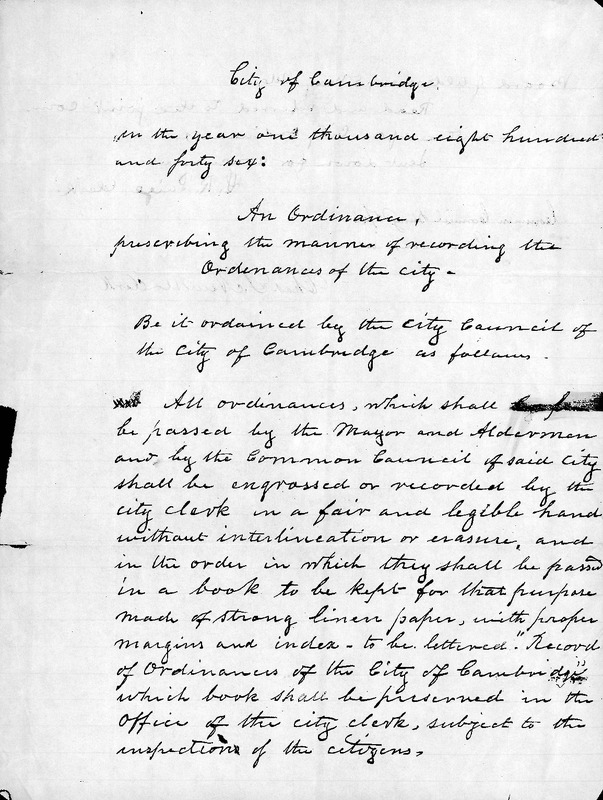 City of Cambridge.
In the year one thousand eight hundred
and forty six:
An Ordinance,
prescribing the manner of recording the
Ordenances of the city -
Be it ordained by the City Council of
the City of Cambridge as follows.
All ordinances, which shall
be passed by the Mayor and Aldermen
and by the Common Council of said City
shall be engrossed or recorded by the
city clerk in a fair and legible hand
without interlineation or erasure, and
in the order in which they shall be passed
in a book to be kept for that purpose
made of strong linen paper, with proper
margins and index - to be lettered "Record
of Ordinances of the City of Cambridge"
which book shall be preserved in the
Office of the city clerk, subject to the
inspection of the citizens.